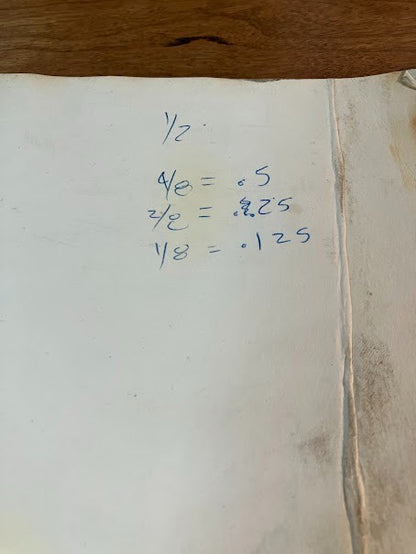 1/2
4/8 = .5
2/8 = .25
1/8 = .125